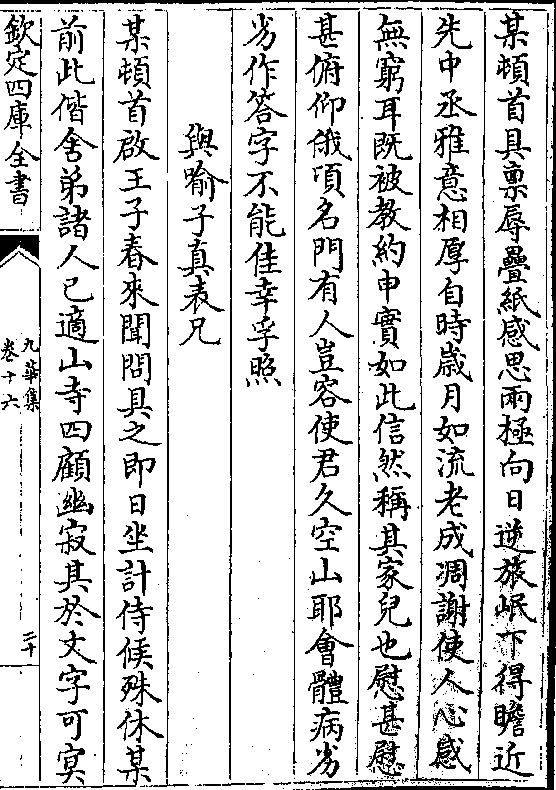 某頓首具稟辱疊紙感思兩極向日逆旅岷下得瞻近
先中丞雅意相厚自時歲月如流老成凋謝使人心感
無窮耳既被教約申實如此信然稱其家兒也慰甚慰
甚俯仰俄頃名門有人豈容使君久空山耶會體病劣
劣作答字不能佳幸孚照
與喻子真表兄
某頓首啟王子春來聞問具之即日坐計侍候殊休某
前此偕舍弟諸人已適山寺四顧幽寂其於文字可冥
欽定四庫全書
九華集
卷十六
二十